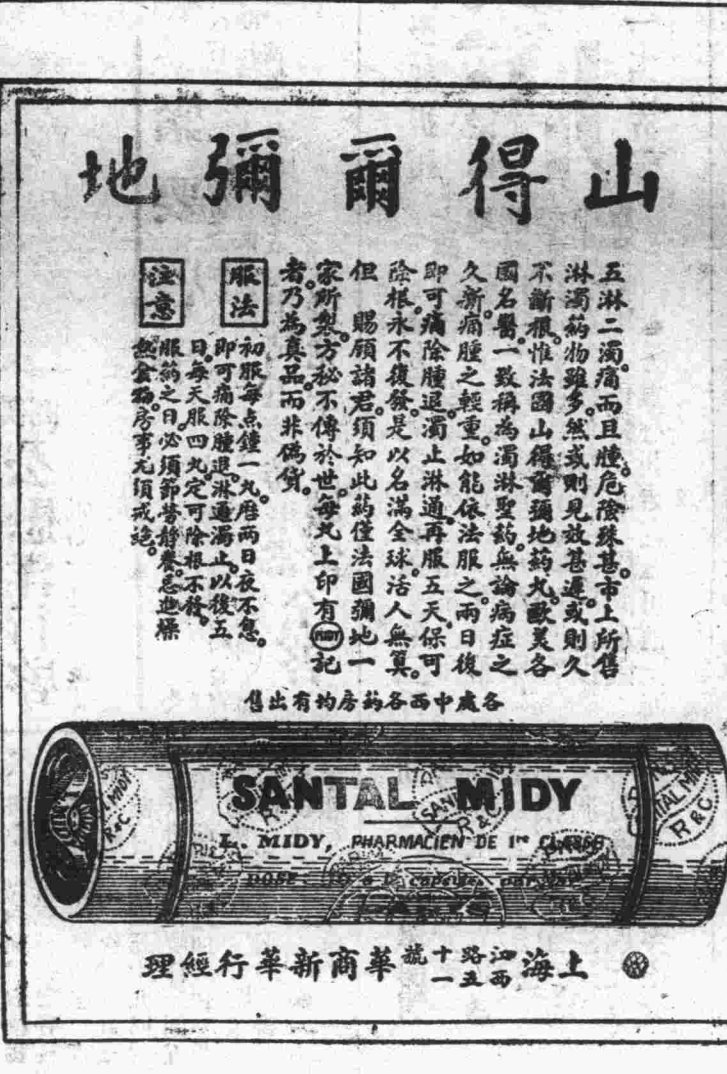 山得爾彌地
五淋二濁痛而且腫危險殊甚市上所售
淋濁葯物雖多然或則見效甚遲或則久
不斷根惟法國山得爾彌地葯丸歐美各
國名醫一致稱為濁淋聖葯無論病症之
久新痛腫之輕重如能依法服之兩日後
即可痛除腫退濁止淋通再服五天保可
除根永不復發是以名滿全球活人無算
但 賜顧諸君須知此葯僅法國彌地一
家所製方秘不傳於世每丸上印有MIDY記
者乃為真品而非偽貨
服法
初服每点鐘一丸歷兩日夜不息
即可痛除腫退淋通濁止以後五
日每天服四丸定可除根不發
注意
服葯之日必須節勞靜養忌進燥
熱食物房事尤須戒絕
各處中西各葯房均有出售
SANTAL MIDY
L. MIDY, PHARMACIEN DE 1re CLASSE
SANTAL MIDY
R & C
上海江西路五十一號華商新華行經理